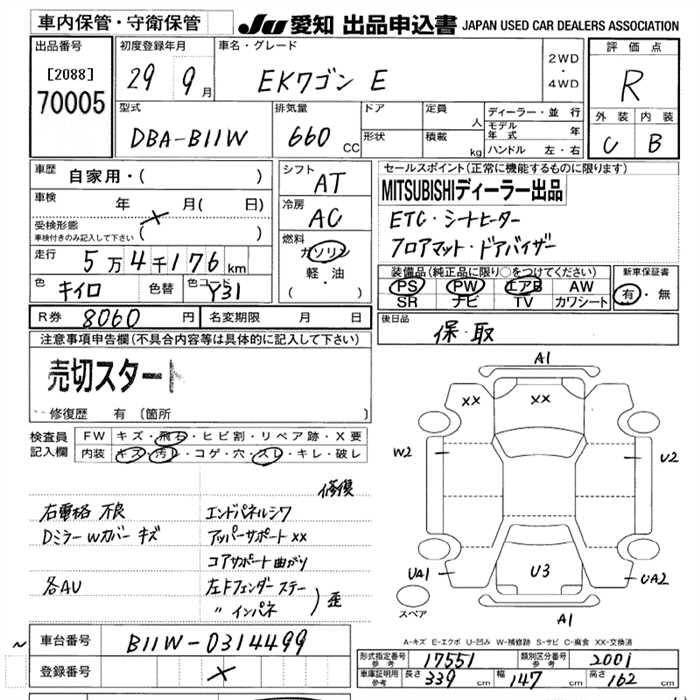 車内保管・守衛保管
JU 愛知 出品申込書 JAPAN USED CAR DEALERS ASSOCIATION
出品番号
[2088]
70005
初度登録年月
29 9月
車名・グレード
EKワゴン E
2WD
・
4WD
評価点
R
外装 内装
C B
型式
DBA-B11W
排気量
660 CC
ドア
形状
定員 人
積載 kg
ディーラー・並行
モデル年式 年
ハンドル 左・右
車歴
自家用・( )
車検 年 月( 日)
受検形態
車検付きのみ記入して下さい ( )
走行 5万4千176km
色 キイロ 色替 色コード Y31
シフト
AT
冷房
AC
燃料
ガソリン
・
軽・油
( )
セールスポイント(正常に機能するものに限ります)
MITSUBISHIディーラー出品
ETC・シートヒーター
フロアマット・ドアバイザー
装備品(純正品に限り○をつけてください)
PS PW エアB AW
SR ナビ TV カワシート
新車保証書
有・無
R券 8060円 名変期限 月 日
後日品
保・取
注意事項申告欄(不具合内容等は具体的に記入して下さい)
売切スタート
修復歴 有 〔箇所 〕
検査員記入欄
FW キズ・飛石・ヒビ割・リペア跡・X要
内装 キズ・汚レ・コゲ・穴・スレ・キレ・破レ
修復
右電格 不良
Dミラー Wカバー キズ
各AU
エンドパネルシワ
アッパーサポート XX
コアサポート曲がり
左Fフェンダー ステー
〃 インパネ ) 歪
A1
XX XX
W2
U2
UA1
U3
UA2
A1
スペア
A-キズ E-エクボ U-凹み W-補修跡 S-サビ C-腐食 XX-交換済
~
車台番号 B11W-0314499
登録番号
形式指定番号 参考 17551
類別区分番号 参考 2001
車庫証明用 参考 長さ 339 cm 幅 147 cm 高さ 162 cm